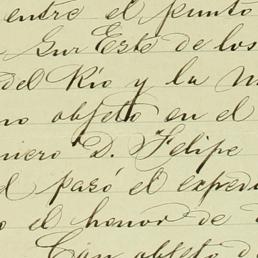 entre el punto
Sur Este de los
del Río y la
no objeto en el
niero D. Felipe
pasó el expedi
o el honor de
Con objeto de